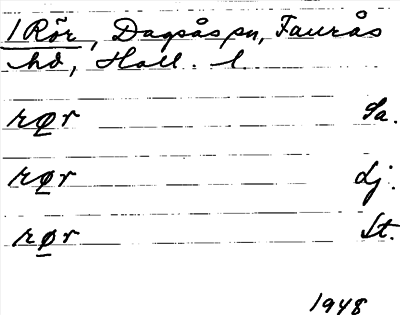 1 Rör, Dagsås sn, Faurås
hd, Hall. l.
rør Sa.
rør Lj.
rør St.
1948